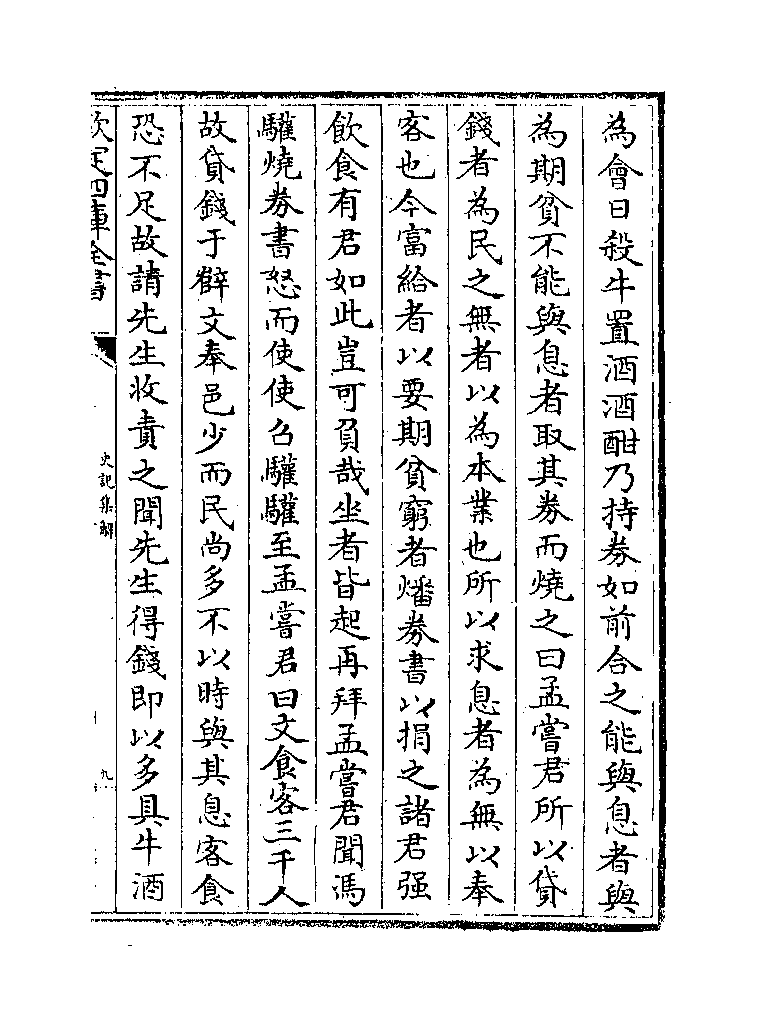 為會日殺牛置酒酒酣乃持券如前合之能與息者與
為期貧不能與息者取其券而燒之曰孟嘗君所以貸
錢者為民之無者以為本業也所以求息者為無以奉
客也今富給者以要期貧窮者燔券書以捐之諸君强
飲食有君如此豈可負哉坐者皆起再拜孟嘗君聞馮
驩燒券書怒而使使召驩驩至孟嘗君曰文食客三千人
故貸錢于薛文奉邑少而民尚多不以時與其息客食
恐不足故請先生收責之聞先生得錢即以多具牛酒
欽定四庫全書
史記集解
九